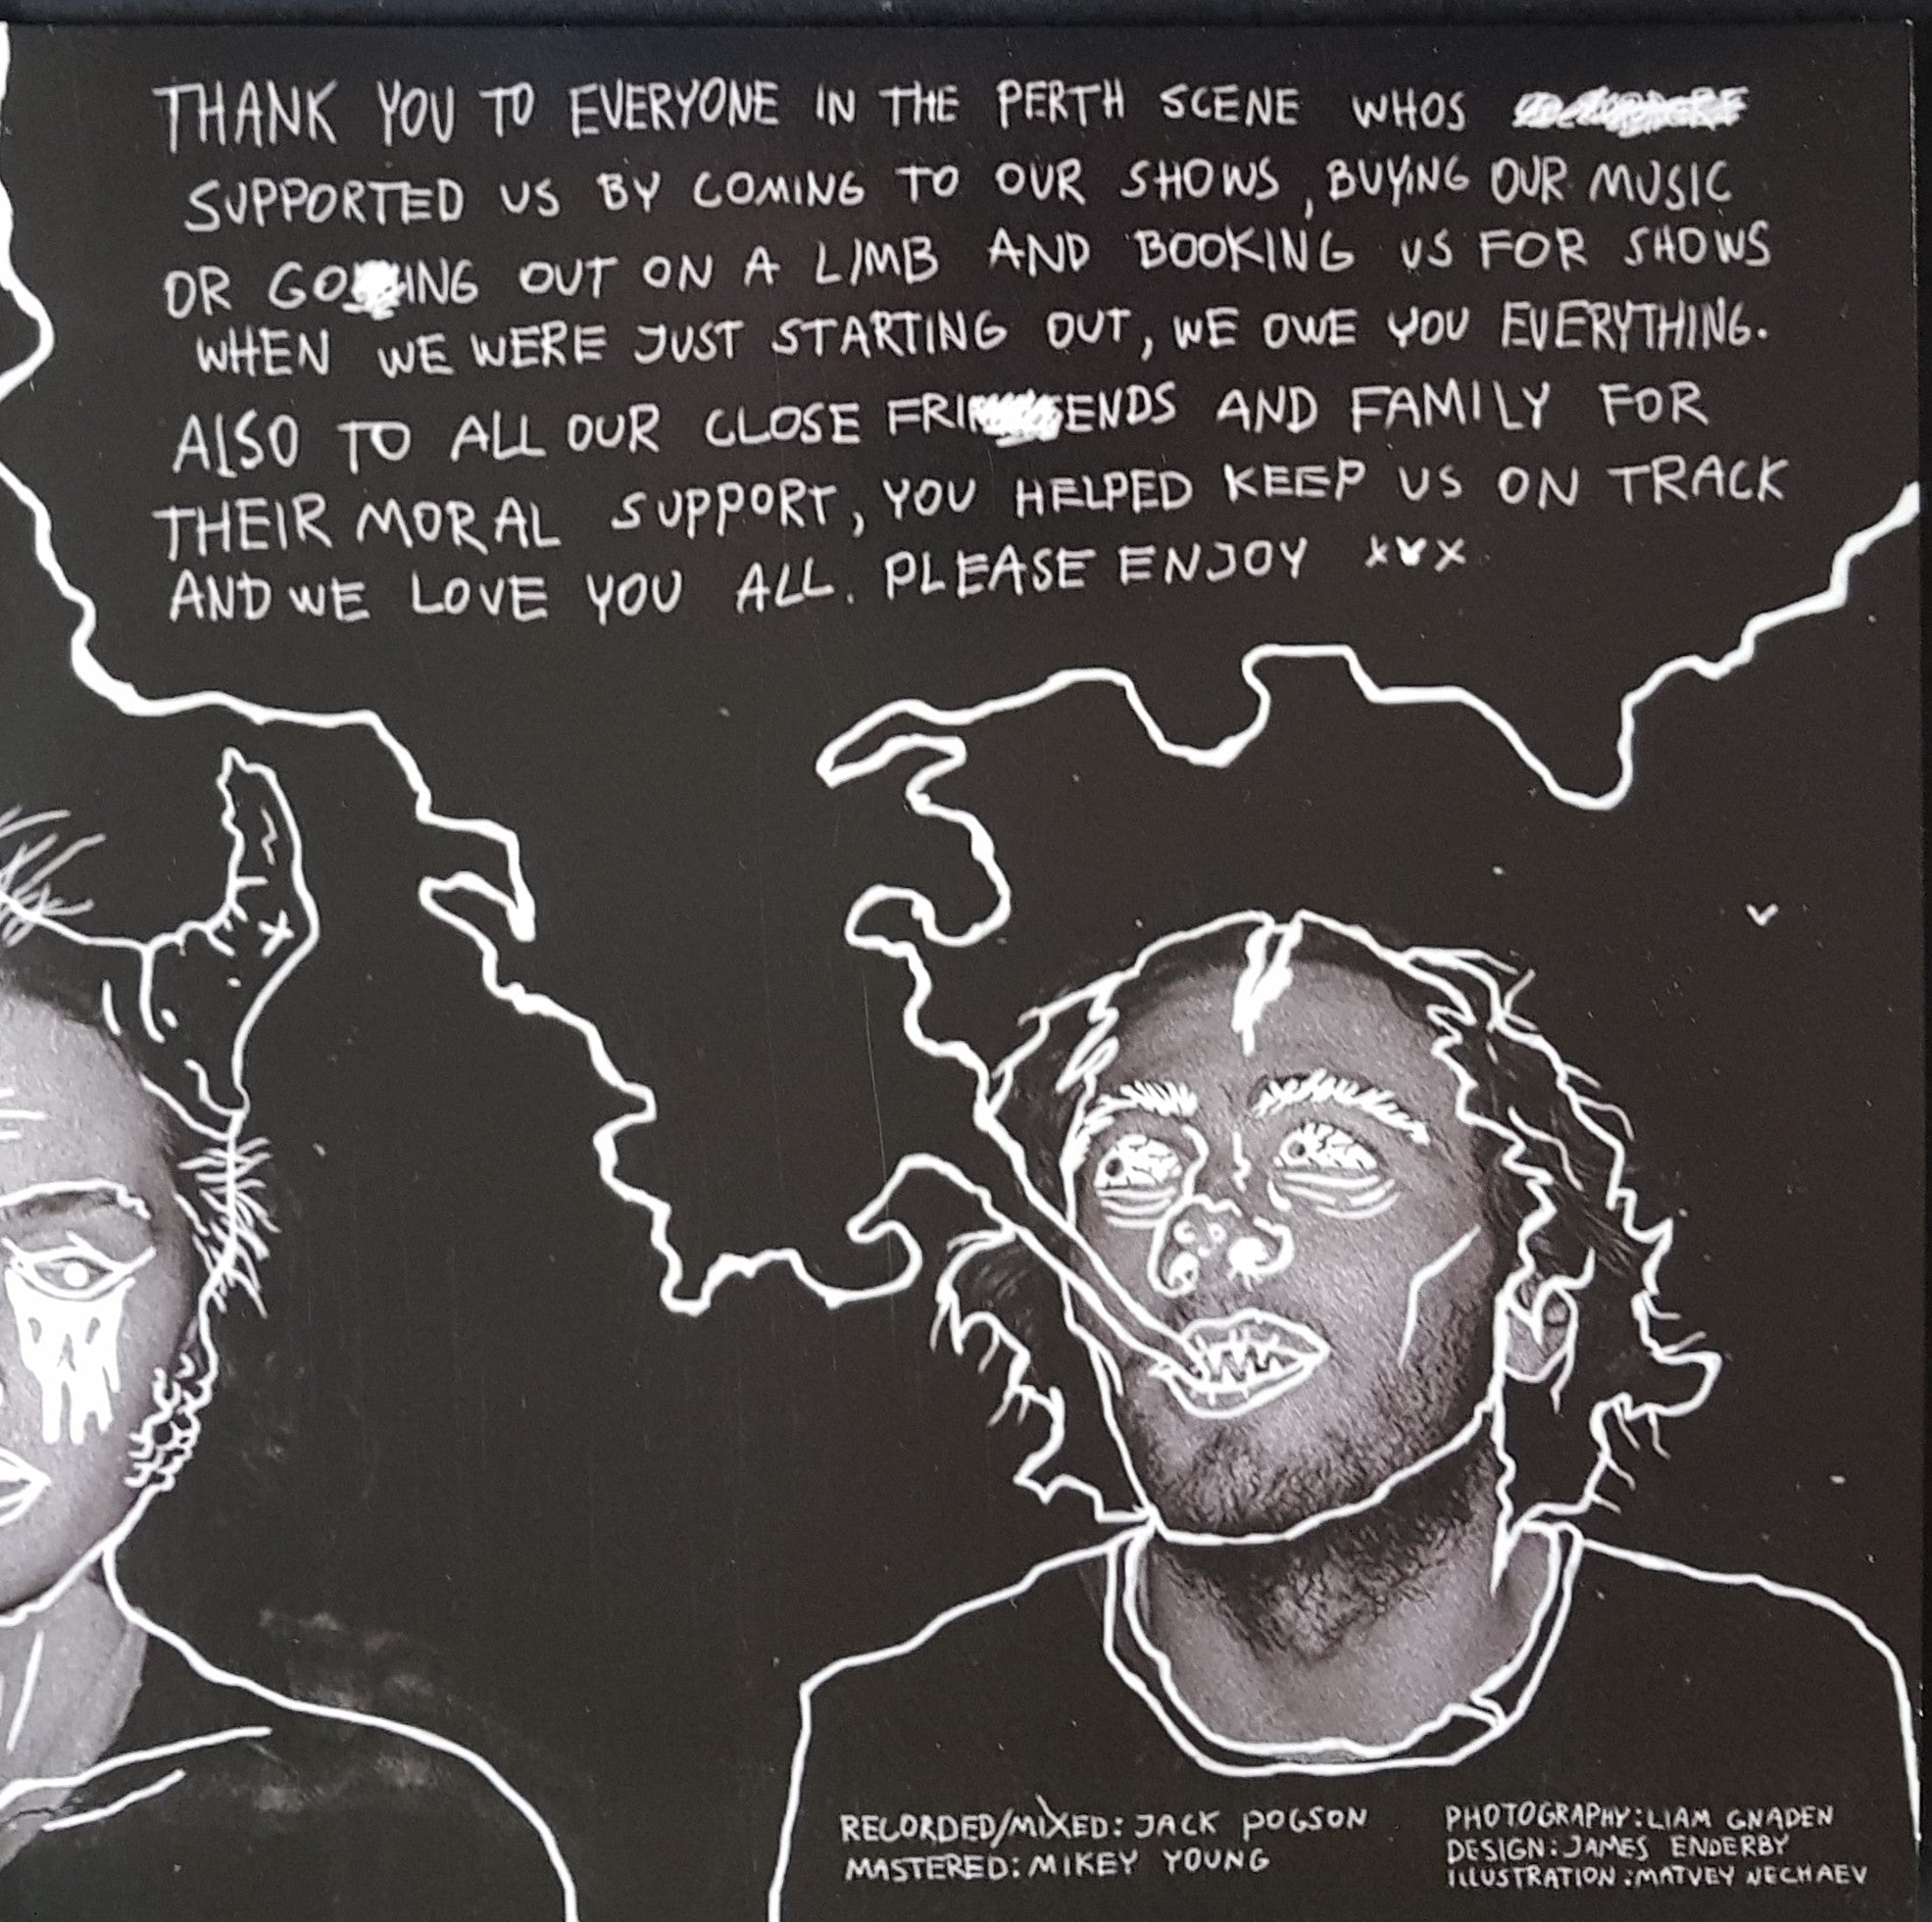 THANK YOU TO EVERYONE IN THE PERTH SCENE WHOS
SUPPORTED US BY COMING TO OUR SHOWS, BUYING OUR MUSIC
OR GOING OUT ON A LIMB AND BOOKING US FOR SHOWS
WHEN WE WERE JUST STARTING OUT, WE OWE YOU EVERYTHING.
ALSO TO ALL OUR CLOSE FRIENDS AND FAMILY FOR
THEIR MORAL SUPPORT, YOU HELPED KEEP US ON TRACK
AND WE LOVE YOU ALL. PLEASE ENJOY x♥x
RECORDED/MIXED: JACK POGSON
MASTERED: MIKEY YOUNG
PHOTOGRAPHY: LIAM GNADEN
DESIGN: JAMES ENDERBY
ILLUSTRATION: MATVEY NECHAEV